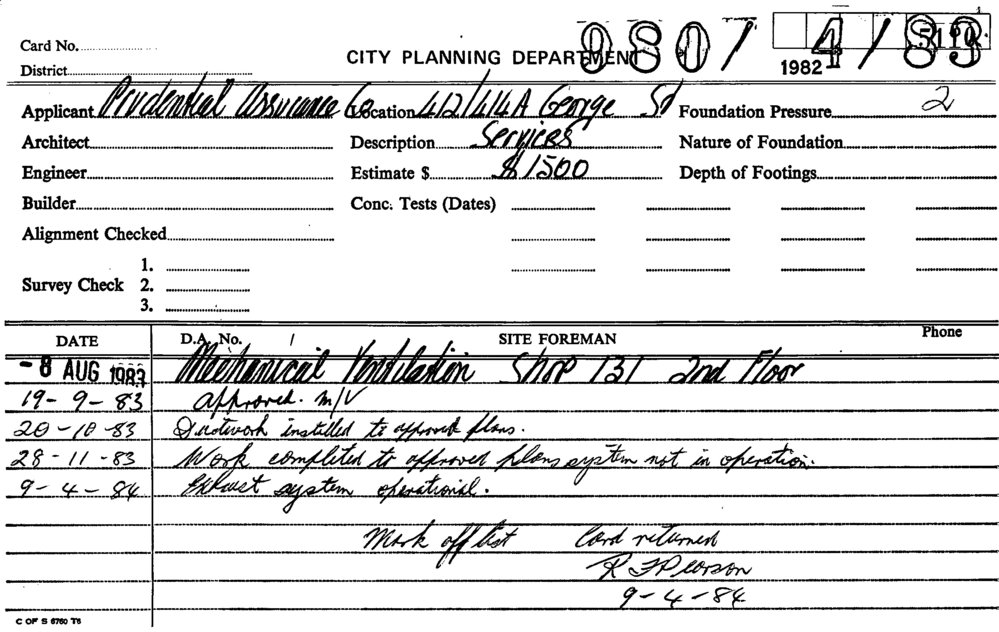 Card No.
CITY PLANNING DEPARTMENT 9807 4/83
1982
5110
District
Applicant Prudential Assurance Co Location 412/414A George St Foundation Pressure 2
Architect Description Services Nature of Foundation
Engineer Estimate $ $1500 Depth of Footings
Builder Conc. Tests (Dates)
Alignment Checked
1.
Survey Check 2.
3.
DATE D.A. No. / SITE FOREMAN Phone
- 8 AUG 1983 Mechanical Ventilation Shop 131 2nd Floor
19 - 9 - 83 Approved. M/V
20 - 10 - 83 Ductwork installed to approved plans.
28 - 11 - 83 Work completed to approved plans system not in operation.
9 - 4 - 84 Exhaust system operational.
Mark off list Card returned
R F Pearson
9 - 4 - 84
C OF S 6760 T6